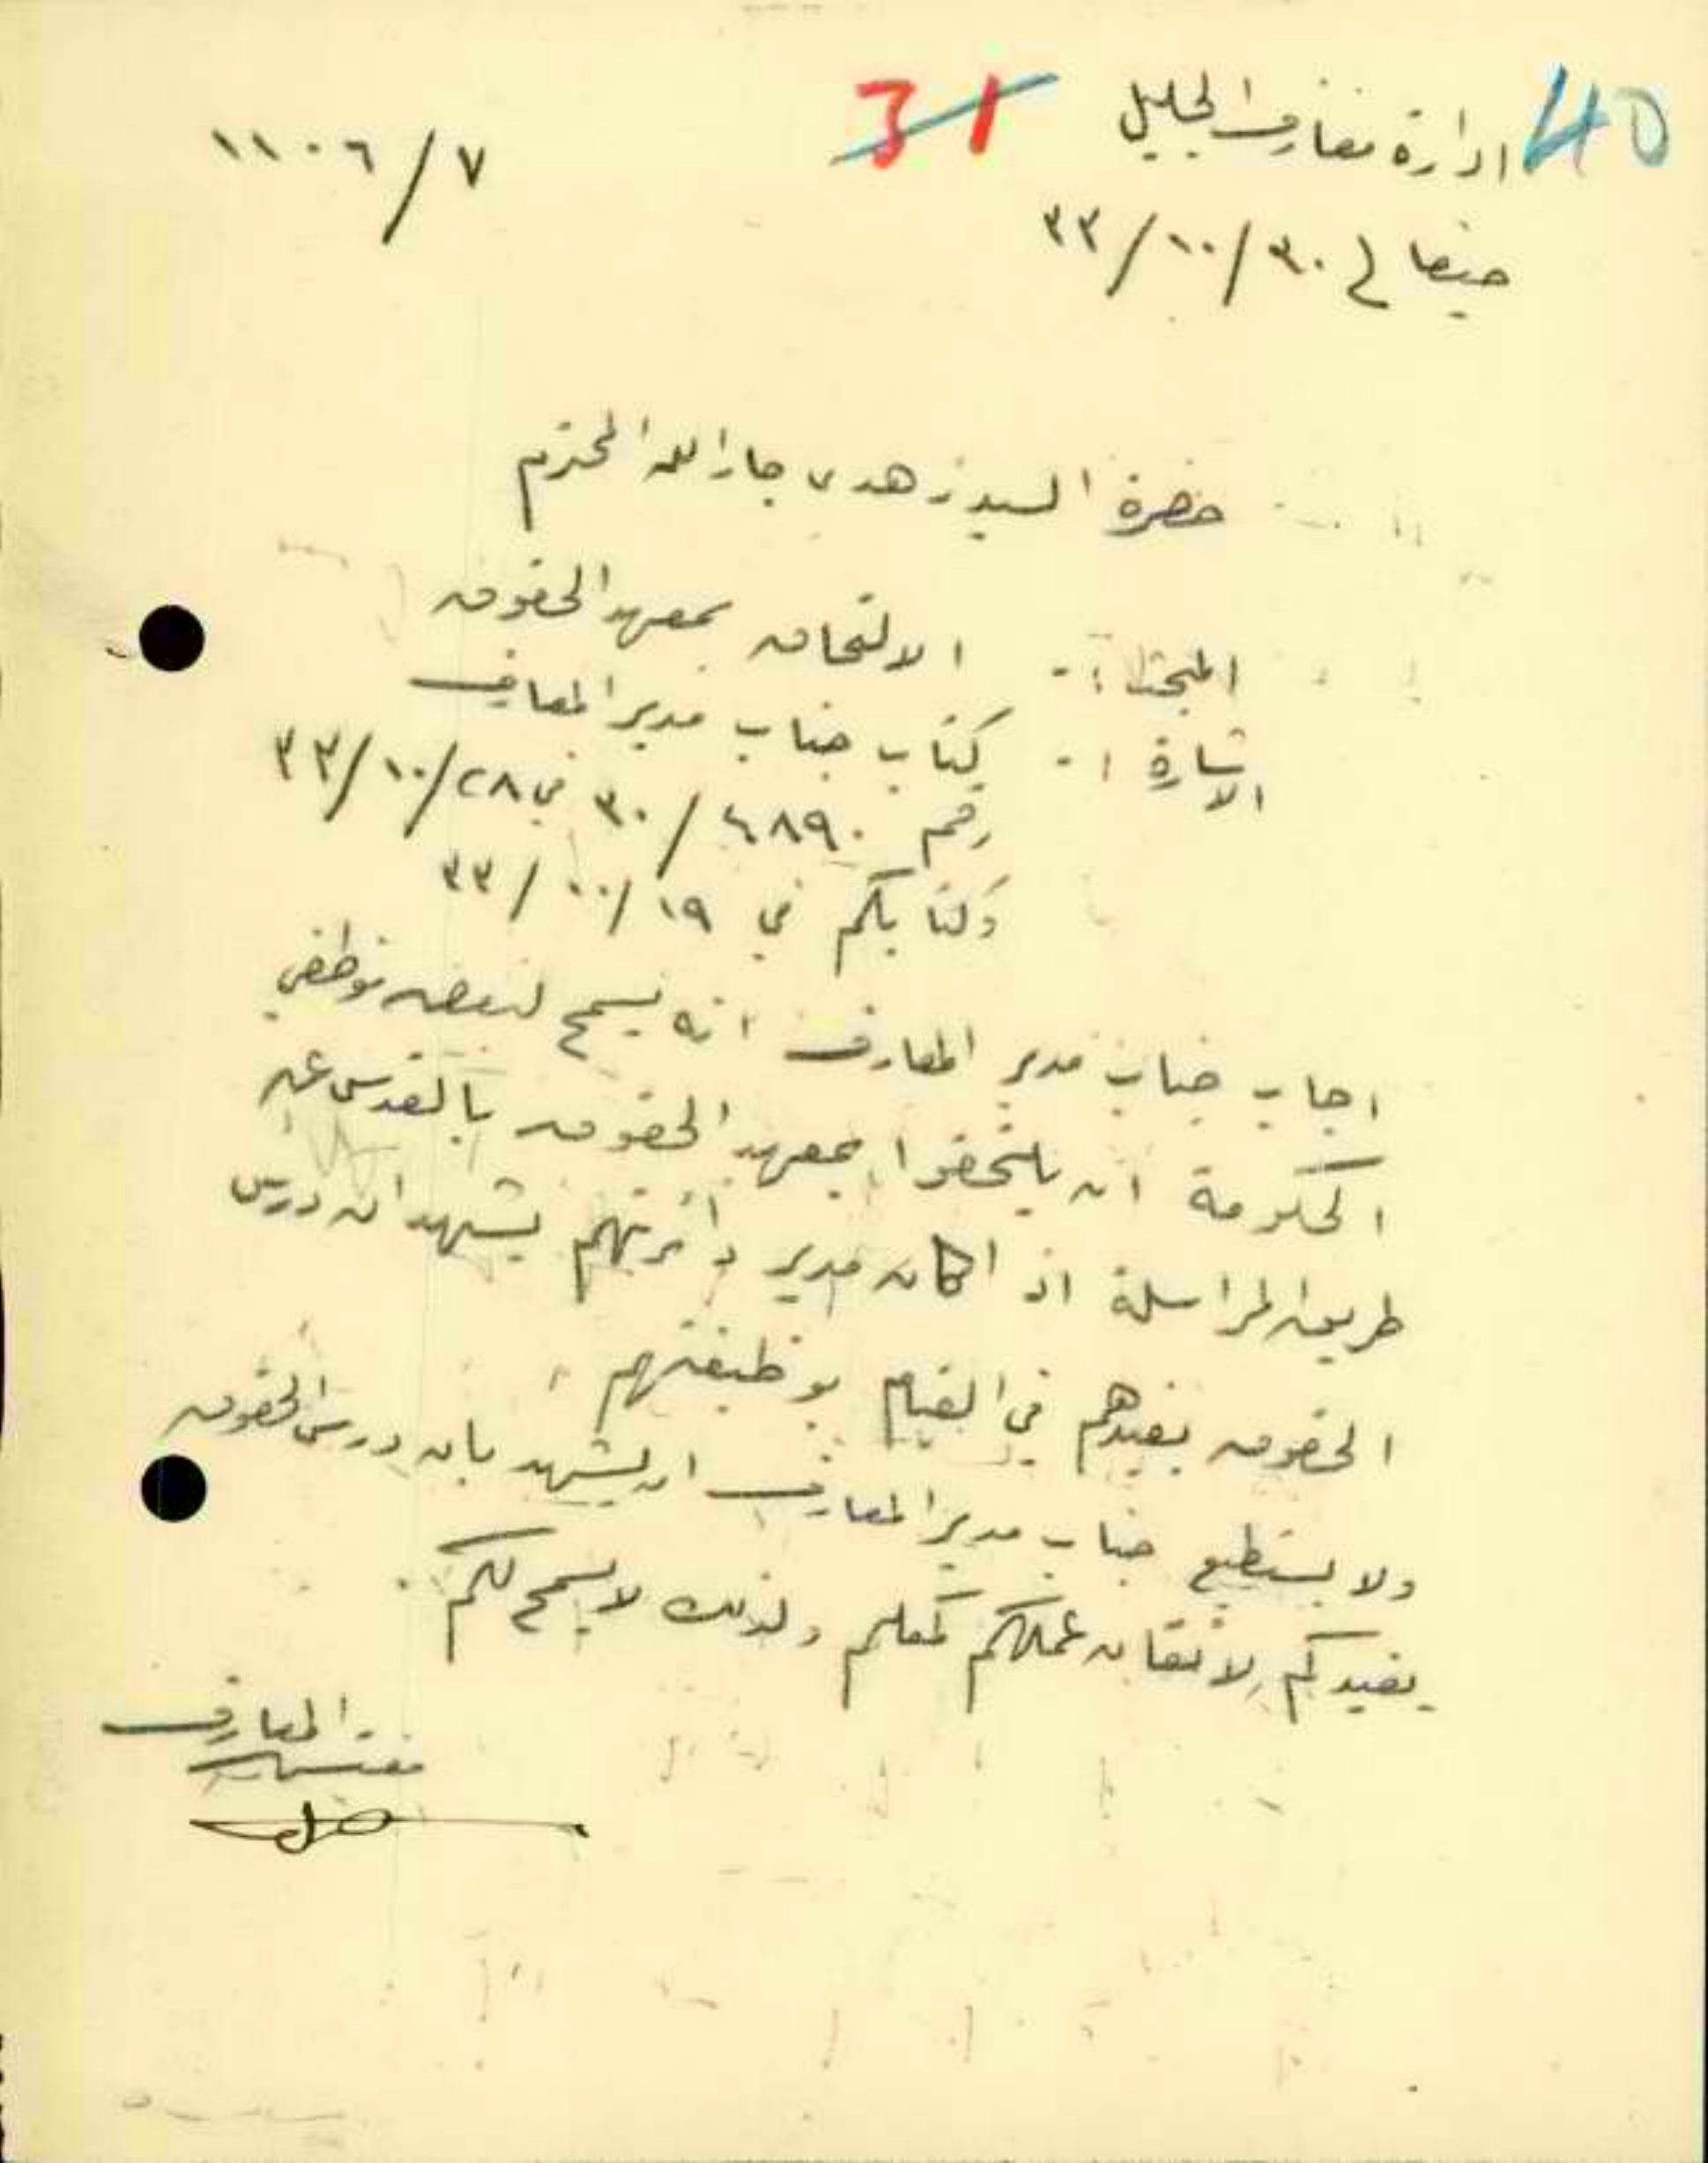 40
31
ادارة معارف الجليل
١١٠٦/٧
حيفا في ٣٠/١٠/٣٣
حضرة السيد زهدي جار الله المحترم
المبحث :- الالتحاق بمعهد الحقوق
الاشارة :- كتاب جناب مدير المعارف
رقم ٤٨٩٠/٣٠ في ٢٨/١٠/٣٣
وكتابكم في ١٩/١٠/٣٣
اجاب جناب مدير المعارف انه يسمح لبعض موظفي
الحكومة ان يلتحقوا بمعهد الحقوق بالقدس عن
طريق المراسلة اذا كان مدير دائرتهم يشهد ان درس
الحقوق يفيدهم في القيام بوظيفتهم
ولا يستطيع جناب مدير المعارف ان يشهد بان درس الحقوق
يفيدكم لاتقان عملكم كمعلم ولذلك لا يسمح لكم.
مفتش المعارف